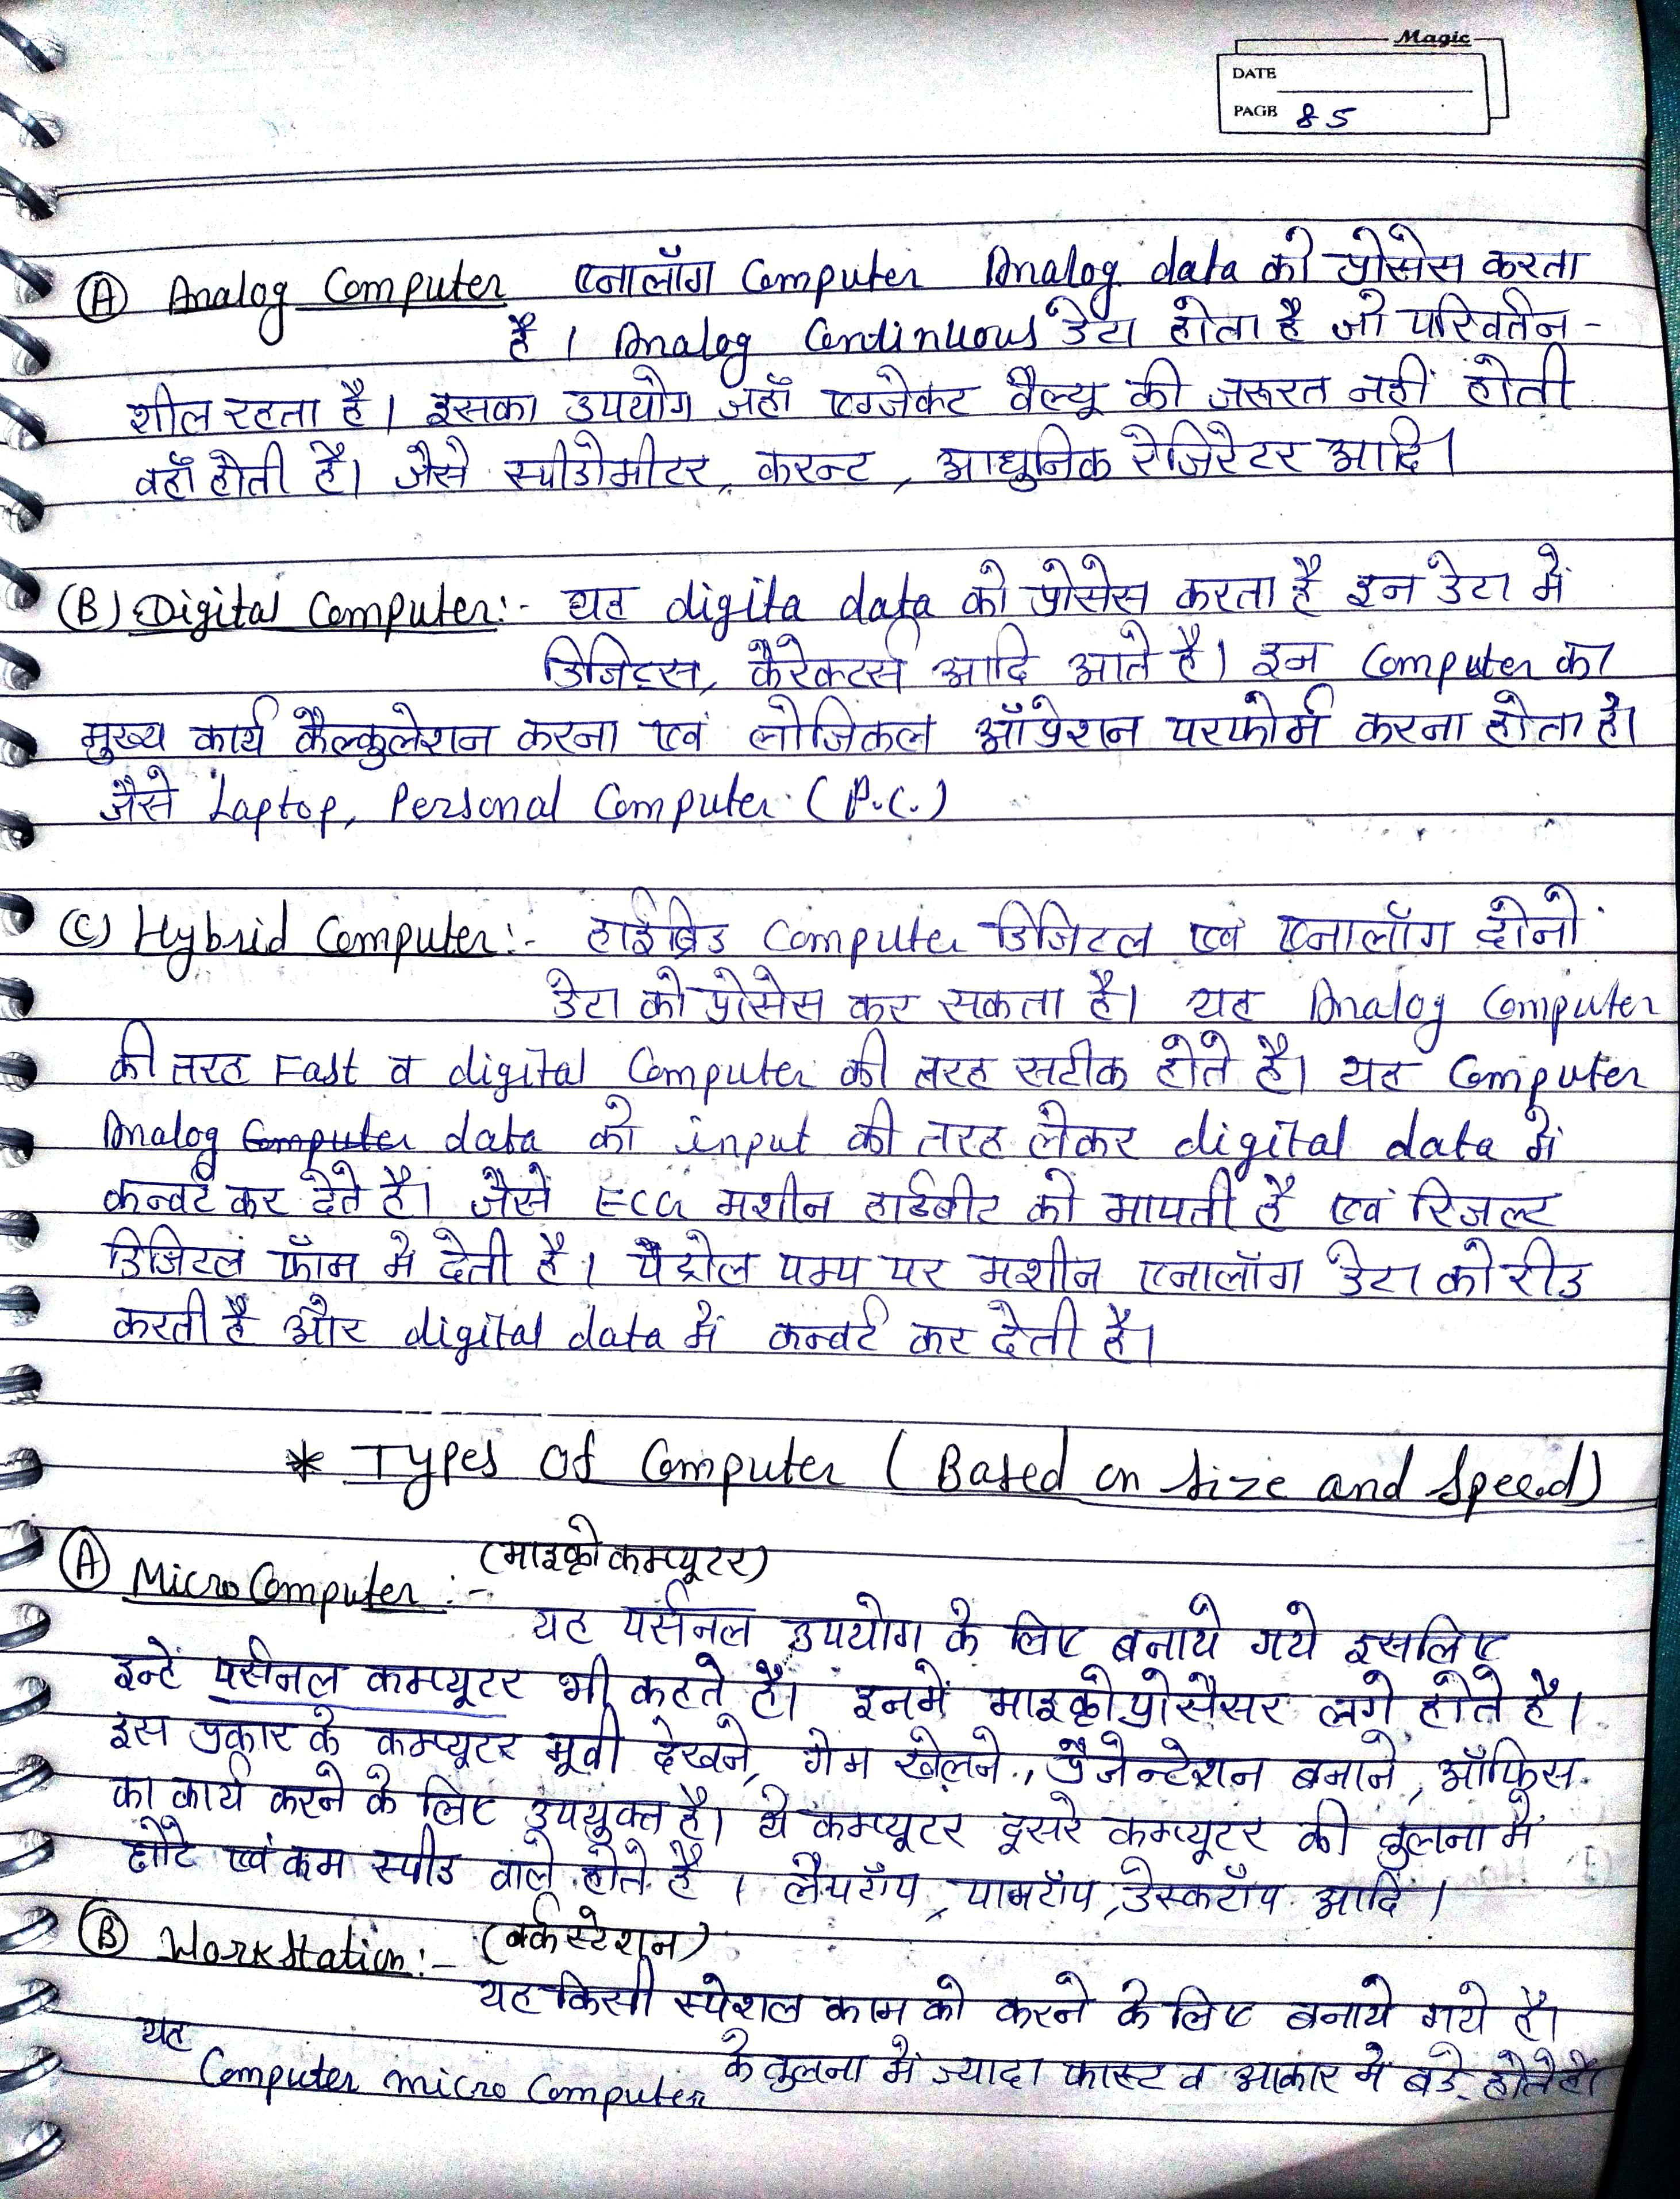 Magic
DATE
PAGE 85
(A) Analog Computer एनालॉग Computer Analog data को प्रोसेस करता
है। Analog Continuous डेटा होता है जो परिवर्तन-
शील रहता है। इसका उपयोग जहाँ एग्जेक्ट वैल्यू की जरूरत नहीं होती
वहाँ होती है। जैसे स्पीडोमीटर, करन्ट, आधुनिक रेजिरेटर आदि।
(B) Digital Computer:- यह digita data को प्रोसेस करता है इन डेटा में
डिजिट्स, कैरेक्टर्स आदि आते है। इन Computer का
मुख्य कार्य कैल्कुलेशन करना एवं लोजिकल ऑप्रेशन परफोर्म करना होता है।
जैसे Laptop, Personal Computer (P.C.)
(C) Hybrid Computer:- हाईब्रिड Computer डिजिटल एवं एनालॉग दोनो
डेटा को प्रोसेस कर सकता है। यह Analog Computer
की तरह Fast व digital Computer की तरह सटीक होते है। यह Computer
Analog Computer data को input की तरह लेकर digital data में
कन्वर्ट कर देते है। जैसे ECG मशीन हार्टबीट को मापती है एवं रिजल्ट
डिजिटल फॉम मे देती है। पेट्रोल पम्प पर मशीन एनालॉग डेटा को रीड
करती है और digital data में कन्वर्ट कर देती है।
* Types Of Computer (Based on Size and Speed)
(A) Micro Computer:- (माइक्रो कम्प्यूटर)
यह पर्सनल उपयोग के लिए बनाये गये इसलिए
इन्हें पर्सनल कम्प्यूटर भी कहते है। इनमें माइक्रोप्रोसेसर लगे होते है।
इस प्रकार के कम्प्यूटर मूवी देखने, गेम खेलने, प्रैजेन्टेशन बनाने, ऑफिस
का कार्य करने के लिए उपयुक्त है। ये कम्प्यूटर दूसरे कम्प्यूटर की तुलना में
छोटे एवं कम स्पीड वाले होते है। लैपटॉप, पामटॉप, डेस्कटॉप आदि।
(B) Work Station:- (वर्क स्टेशन)
यह किसी स्पेशल काम को करने के लिए बनाये गये है।
यह Computer micro Computer के तुलना में ज्यादा फास्ट व आकार मे बडे होते है।